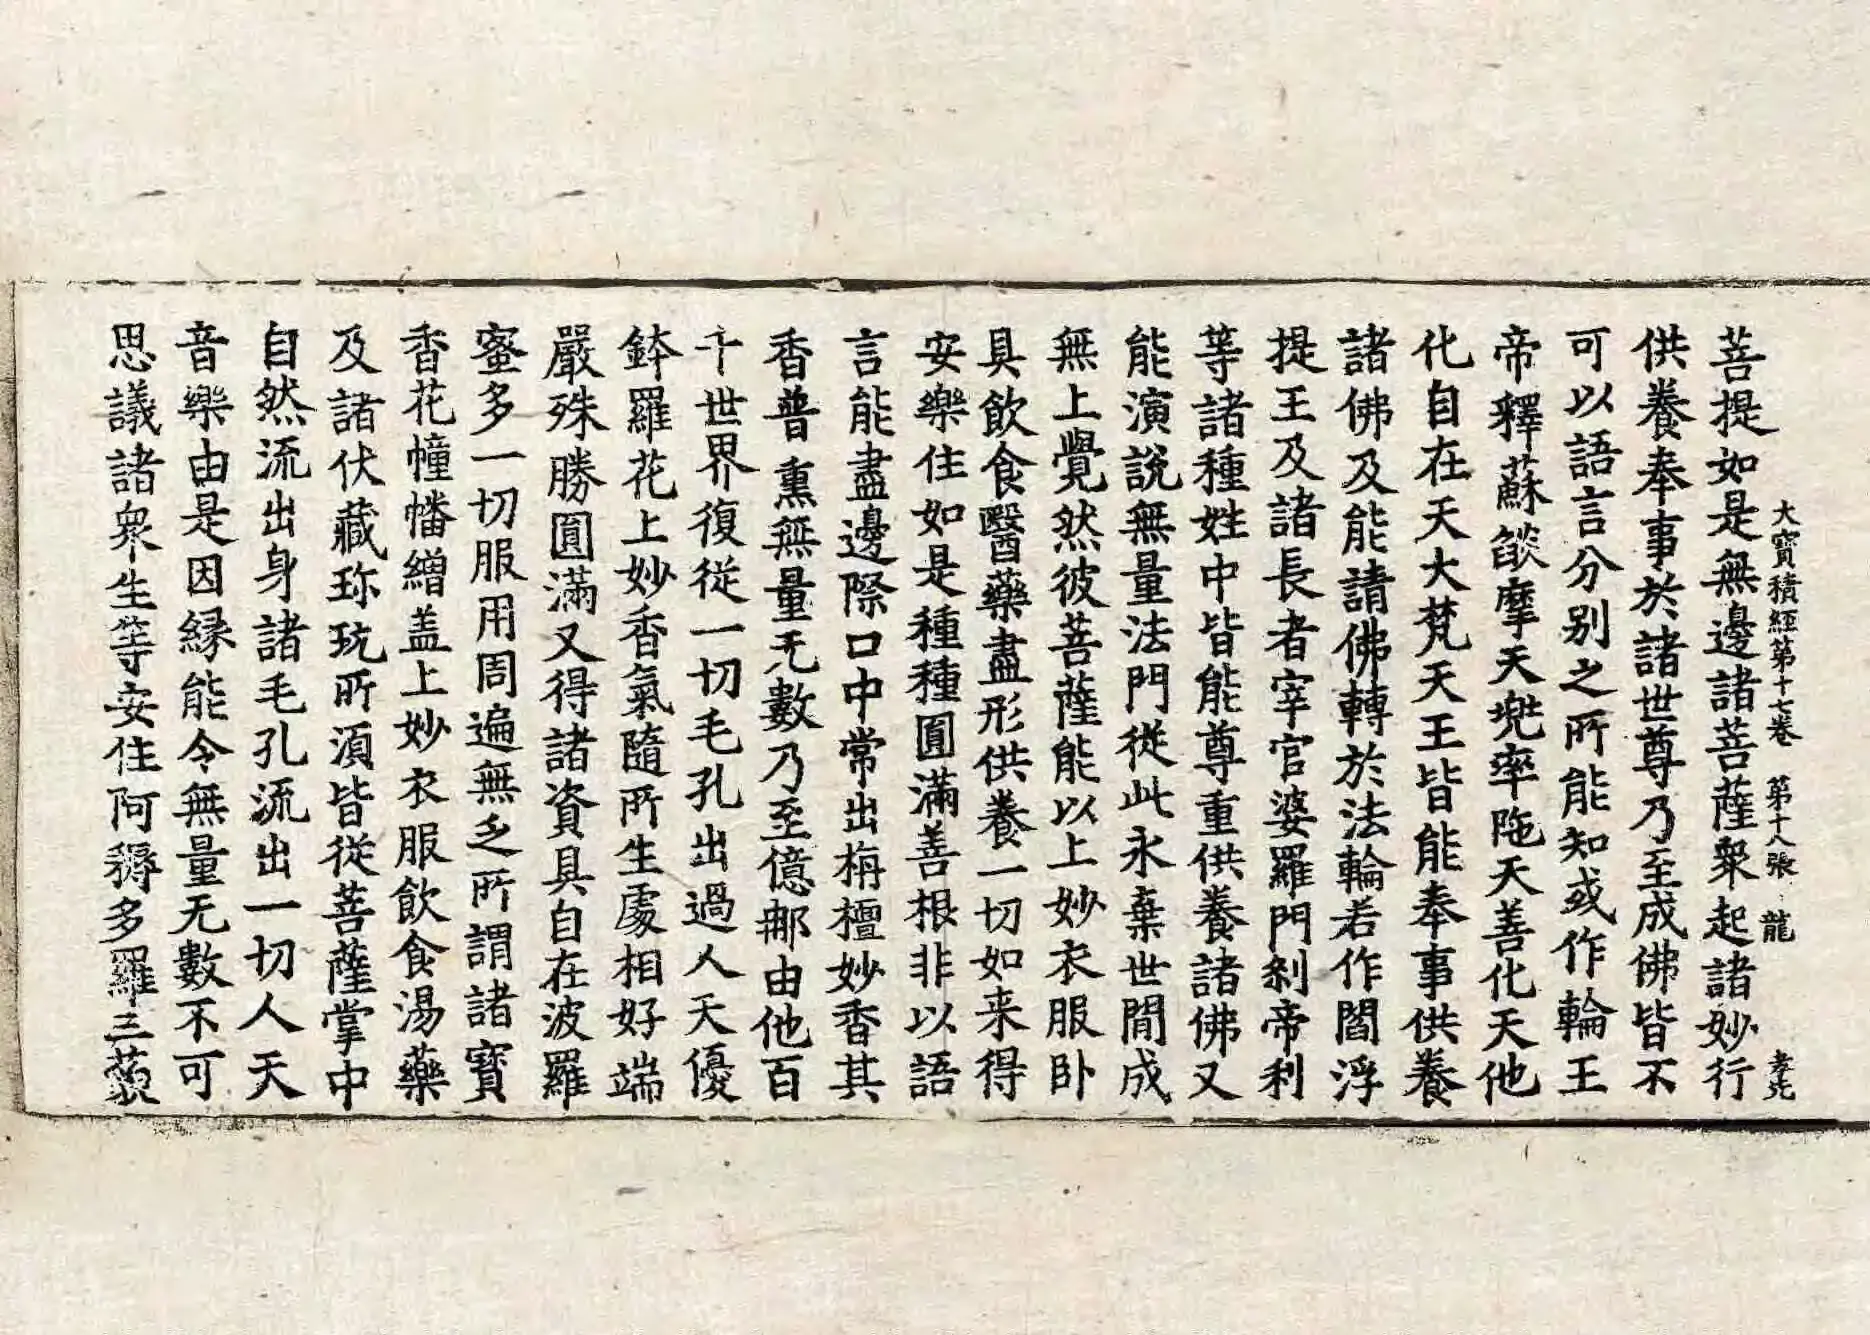 大寶積經第十七卷 第十八張 龍 孝先
菩提如是無邊諸菩薩衆起諸妙行
供養奉事於諸世尊乃至成佛皆不
可以語言分别之所能知或作輪王
帝釋蘇燄摩天兜率陁天善化天他
化自在天大梵天王皆能奉事供養
諸佛及能請佛轉於法輪若作閻浮
提王及諸長者宰官婆羅門刹帝利
等諸種姓中皆能尊重供養諸佛又
能演說無量法門從此永棄世間成
無上覺然彼菩薩能以上妙衣服卧
具飲食醫藥盡形供養一切如来得
安樂住如是種種圓滿善根非以語
言能盡邊際口中常出栴檀妙香其
香普熏無量无數乃至億那由他百
千世界復從一切毛孔出過人天優
鉢羅花上妙香氣隨所生處相好端
嚴殊勝圓滿又得諸資具自在波羅
蜜多一切服用周遍無乏所謂諸寶
香花幢幡繒盖上妙衣服飲食湯藥
及諸伏藏珎玩所須皆從菩薩掌中
自然流出身諸毛孔流出一切人天
音樂由是因縁能令無量无數不可
思議諸衆生等安住阿耨多羅三藐